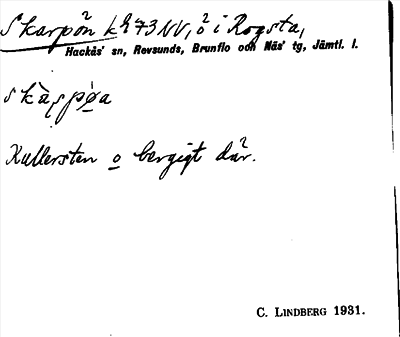 Skarpön k 73 NV, ö i Rogsta,
Hackås' sn, Revsunds, Brunflo och Näs' tg, Jämtl. l.
skàspøa
Kullersten o bergigt där.
C. LINDBERG 1931.